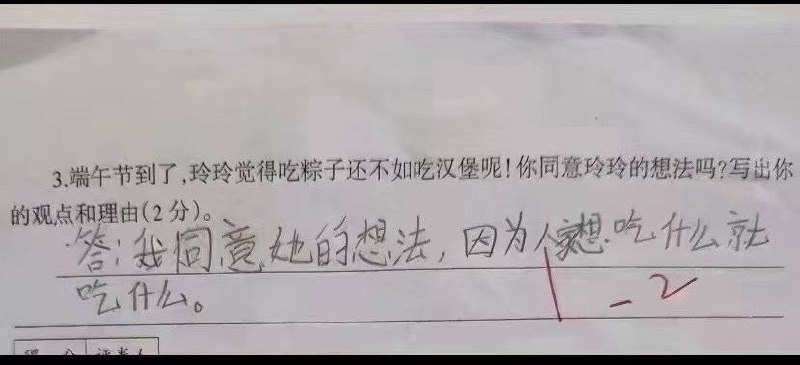 3.端午节到了,玲玲觉得吃粽子还不如吃汉堡呢!你同意玲玲的想法吗?写出你
的观点和理由(2分)。
答:我同意她的想法,因为人家想吃什么就
吃什么。
-2